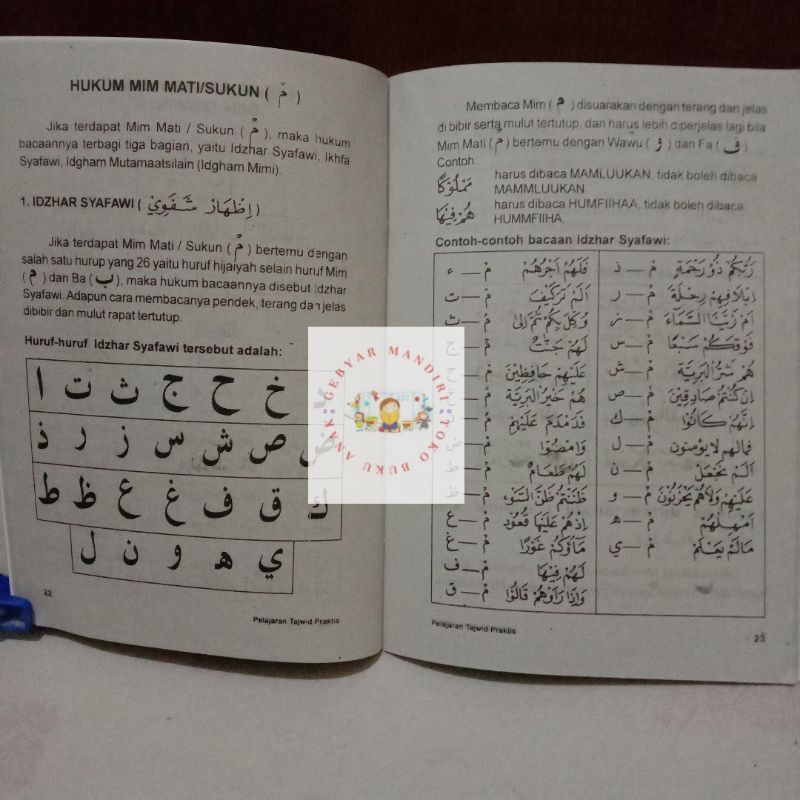 HUKUM MIM MATI/SUKUN ( مْ )
Jika terdapat Mim Mati / Sukun ( مْ ), maka hukum
bacaannya terbagi tiga bagian, yaitu Idzhar Syafawi, Ikhfa
Syafawi, Idgham Mutamaatsilain (Idgham Mimi).
1. IDZHAR SYAFAWI ( إِظْهَارْ شَفَوِيْ )
Jika terdapat Mim Mati / Sukun ( مْ ) bertemu dengan
salah satu hurup yang 26 yaitu huruf hijaiyah selain huruf Mim
( م ) dan Ba ( ب ), maka hukum bacaannya disebut Idzhar
Syafawi. Adapun cara membacanya pendek, terang dan jelas
dibibir dan mulut rapat tertutup.
Huruf-huruf Idzhar Syafawi tersebut adalah:
ا ت ث ج ح خ
ذ ر ز س ش ص ض
ط ظ ع غ ف ق ك
ل ن و ه ي
22
Pelajaran Tajwid Praktis
Membaca Mim ( مْ ) disuarakan dengan terang dan jelas
di bibir serta mulut tertutup, dan harus lebih diperjelas lagi bila
Mim Mati ( مْ ) bertemu dengan Wawu ( و ) dan Fa ( ف )
Contoh:
مَمْلُوْكًا harus dibaca MAMLUUKAN, tidak boleh dibaca
MAMMLUUKAN
هُمْ فِيْهَا harus dibaca HUMFIIHAA, tidak boleh dibaca
HUMMFIIHA.
Contoh-contoh bacaan Idzhar Syafawi:
مْ — ء فَلَهُمْ اَجْرُهُمْ
مْ — ت اَلَمْ تَرَكَيْفَ
مْ — ث
مْ — ج لَهُمْ جَنّٰتٌ
مْ — ح عَلَيْهِمْ حَافِظِيْنَ
مْ — خ هُمْ خَيْرُ الْبَرِيَّةِ
قَدَمْدَمَ عَلَيْهِمْ
وَامْضُوْا
ط لَهُمْ طَعَامٌ
ظ ظَنَنْتُمْ ظَنَّ السَّوْءِ
مْ — ع اِذْهُمْ عَلَيْهَا قُعُوْدٌ
مْ — غ مَآؤُكُمْ غَوْرًا
مْ — ف لَهُمْ فِيْهَا
مْ — ق وَاِذَا رَاَوْهُمْ قَالُوْا
مْ — ذ رَبُّكُمْ ذُوْ رَحْمَةٍ
مْ — ر اِيْلَافِهِمْ رِحْلَةَ
مْ — ز
مْ — س فَوْقَكُمْ سَبْعًا
مْ — ش هُمْ شَرُّ الْبَرِيَّةِ
مْ — ص اِنْ كُنْتُمْ صَادِقِيْنَ
مْ — ك اِنَّهُمْ كَانُوْا
مْ — ل فمالهم لا يؤمنون
مْ — ن اَلَمْ نَجْعَلْ
مْ — و عَلَيْهِمْ وَلَاهُمْ يَحْزَنُوْنَ
مْ — ه اَمْهِلْهُمْ
مْ — ي مَالَمْ يَعْلَمْ
Pelajaran Tajwid Praktis
23
GEBYAR MANDIRI
TOKO BUKU ANAK